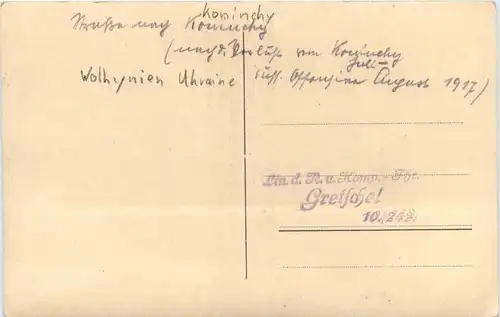 Koninchy
Straße nach Koniuchy
(nach d. Verlust von Koniuchy
Juli-
Wolhynien Ukraine russ. Offensive August 1917)
Ltn. d. R. u. Komp.-Fhr.
Gretschel
10./242.